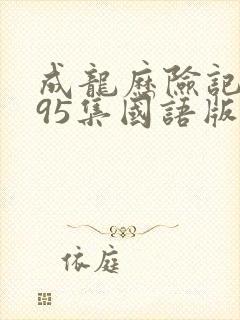 成龍歷險記
95集國語版
依庭